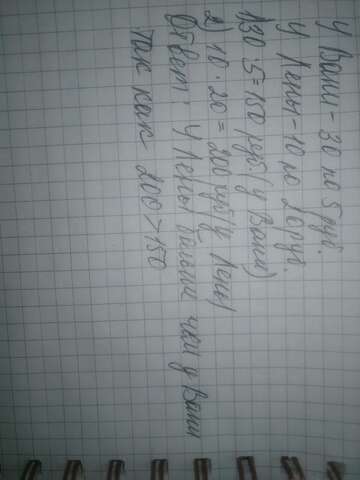 У Вани - 30 по 5 руб.
У Лены - 10 по 20 руб.
1) 30 · 5 = 150 руб (у Вани)
2) 10 · 20 = 200 руб (у Лены)
Ответ: У Лены больше чем у Вани
так как 200 > 150